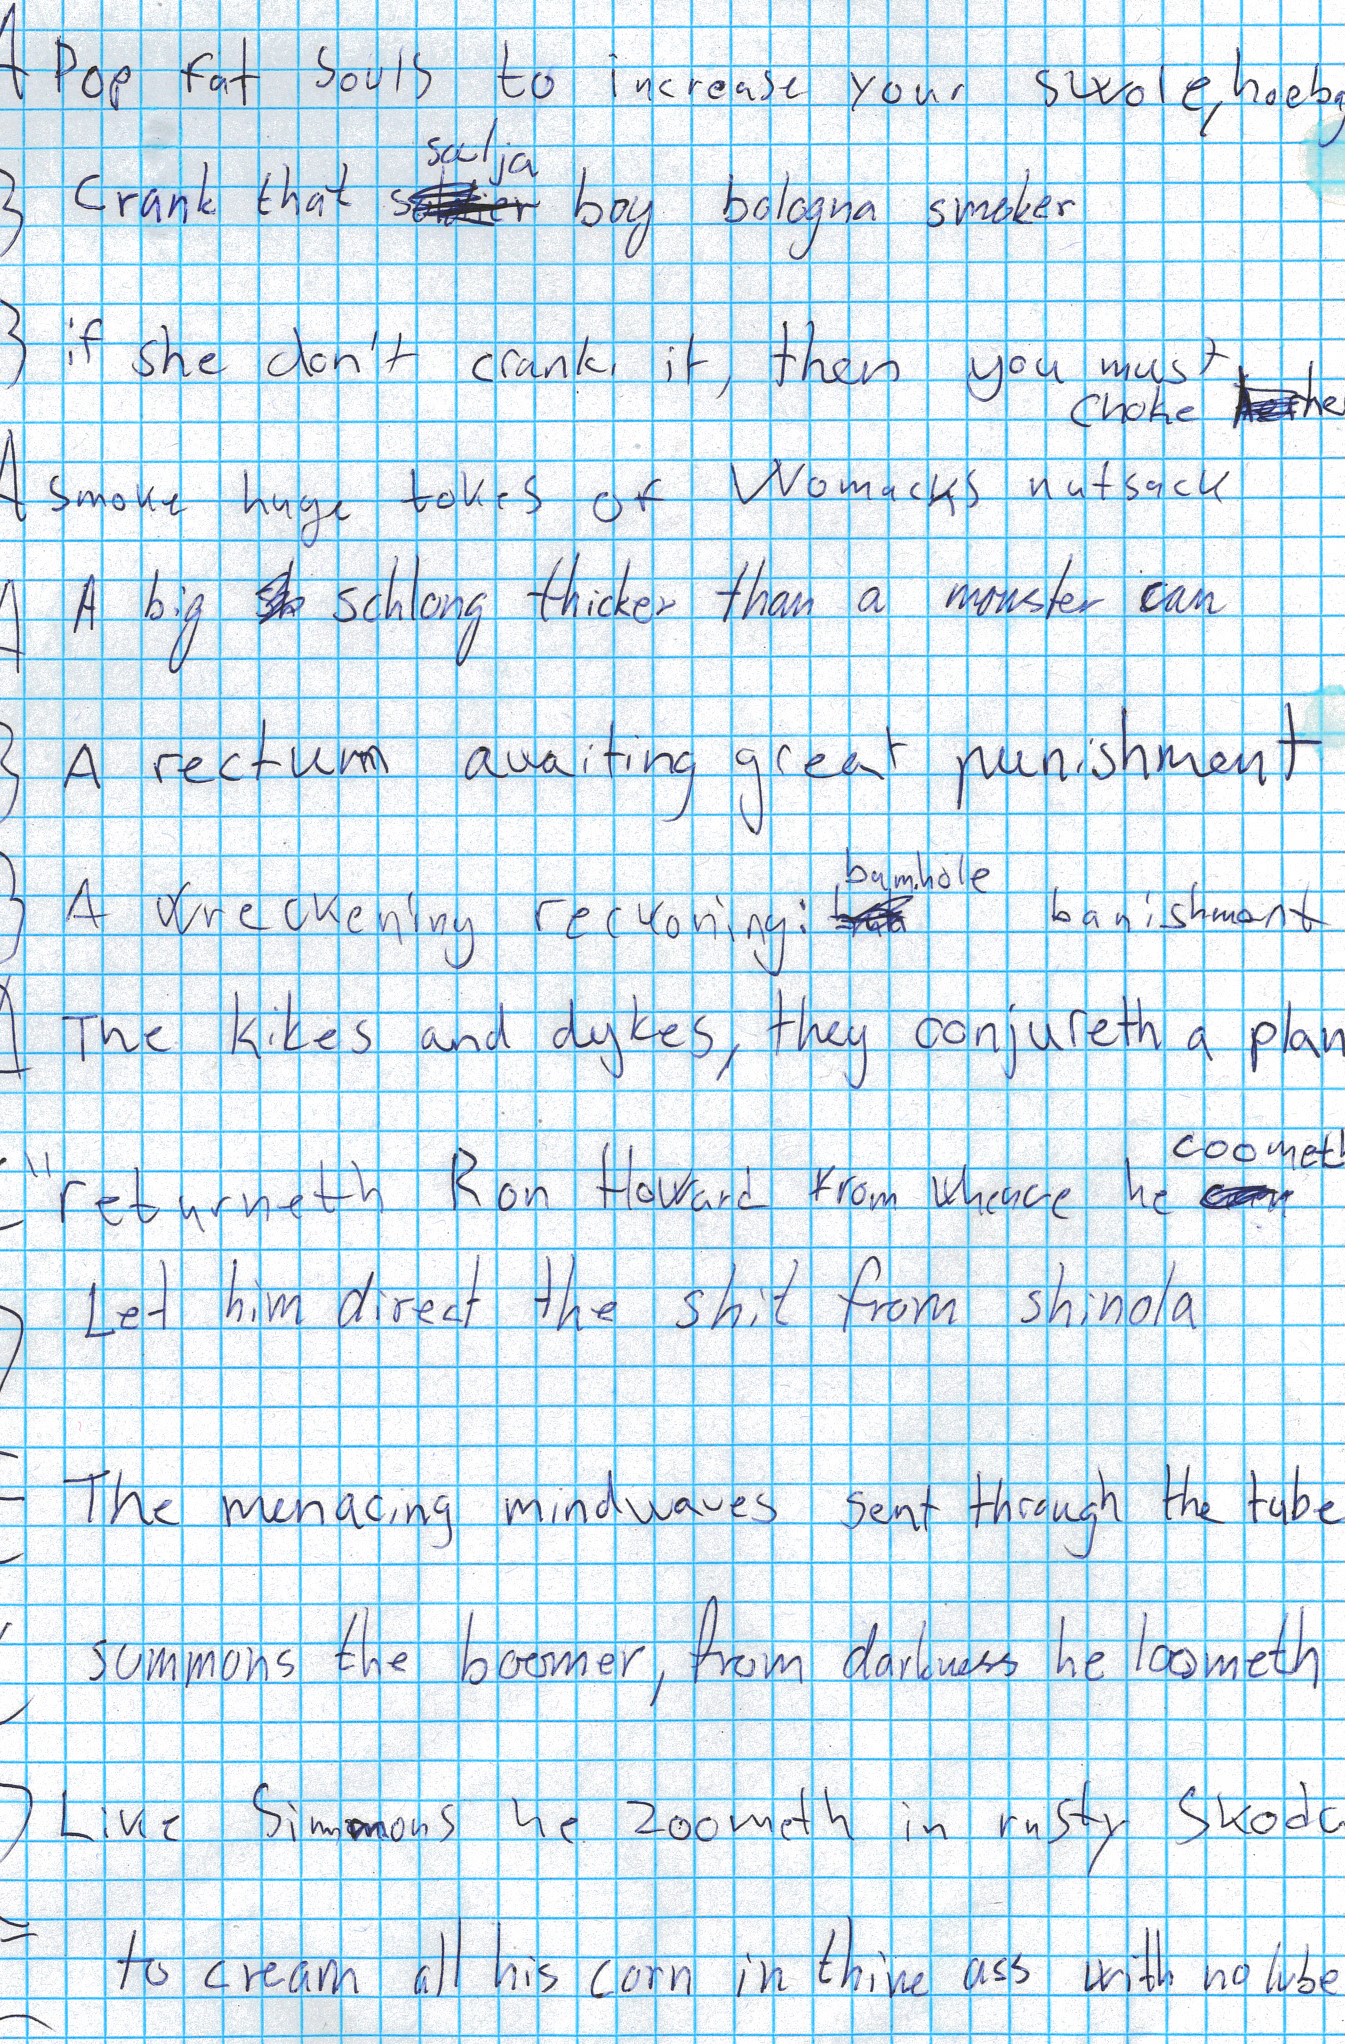 A Pop fat souls to increase your swole, hoeba
B Crank that soulja boy bologna smoker
B if she don't crank it, then you must choke her
A smoke huge tokes of Womacks nutsack
A A big schlong thicker than a monster can
B A rectum awaiting great punishment
B A wreckening reckoning: bumhole banishment
A The kikes and dykes, they conjureth a plan
C "returneth Ron Howard from whence he coometh
D Let him direct the shit from shinola
E The menacing mindwaves sent through the tube
C summons the boomer, from darkness he loometh
D Like Simmons he zoometh in rusty Skoda
E to cream all his corn in thine ass with no lube